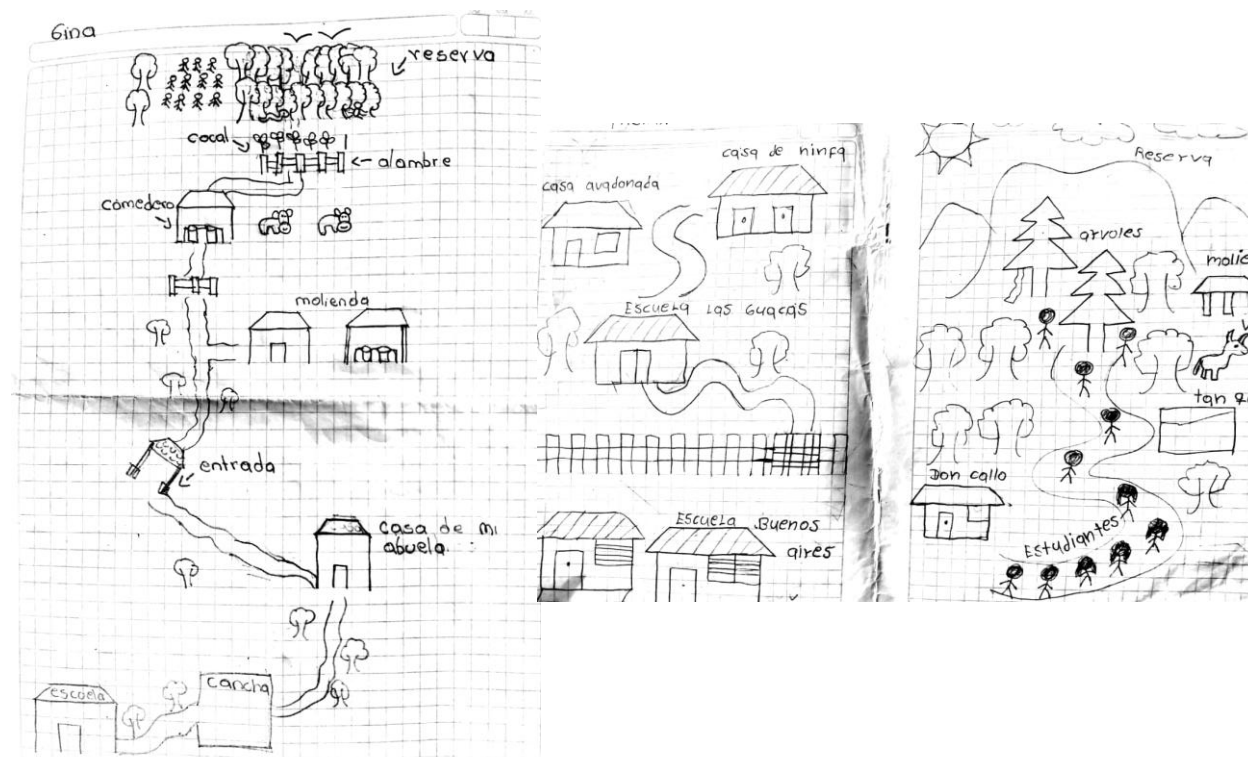 Gina
reserva
cocal
alambre
comedero
molienda
entrada
casa de mi
abuela.
cancha
escuela
casa de ninfa
casa avadonada
Escuela Las Guacas
Escuela Buenos
aires
Reserva
arvoles
Don callo
Estudiantes